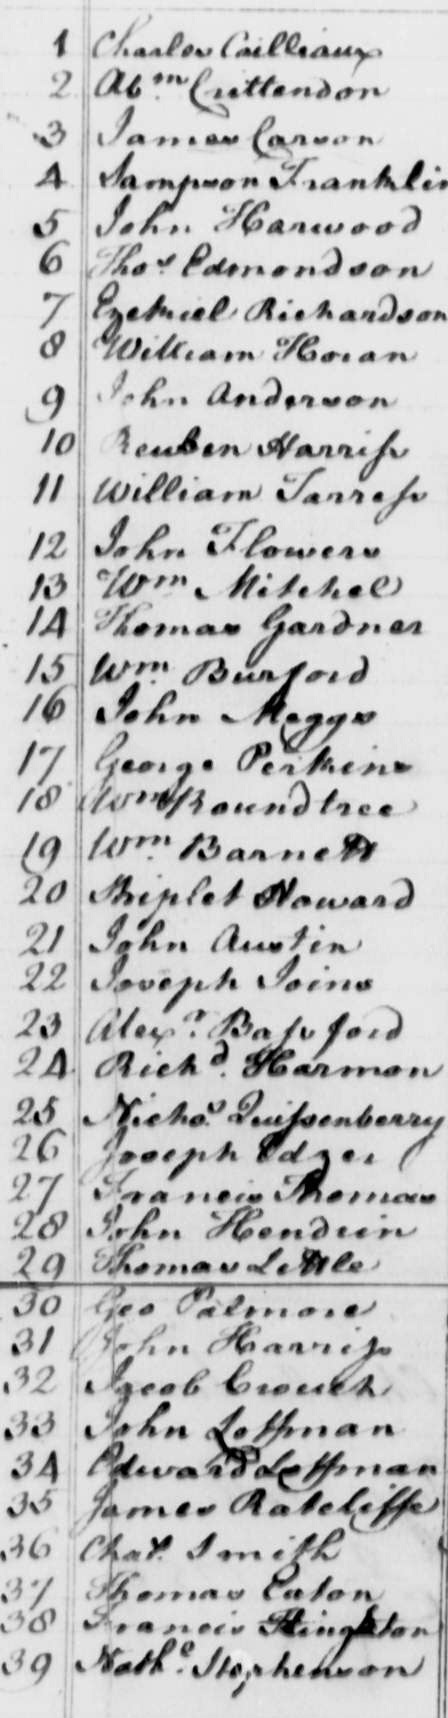 1 Charles Cailliaux
2 Abm Crittendon
3 James Carson
4 Sampson Franklin
5 John Harwood
6 Thos Edmondson
7 Ezekiel Richardson
8 William Horan
9 John Anderson
10 Reuben Harriss
11 William Tarress
12 John Flowers
13 Wm Mitchel
14 Thomas Gardner
15 Wm Burford
16 John Meggs
17 George Perkins
18 Wm Roundtree
19 Wm Barnett
20 Howard
21 John Austin
22 Joseph Joins
23 Alexr Bassford
24 Richd Harmon
25 Nichos Quissenberry
26 Joseph
27 Francis Thomas
28 John Hendrin
29 Thomas Little
30 Geo Patmore
31 John Harriss
32 Jacob Crouch
33 John Loffman
34 Edward Loffman
35 James Ratcliffe
36 Chas Smith
37 Thomas Eaton
38 Francis
39 Nathl Stephenson